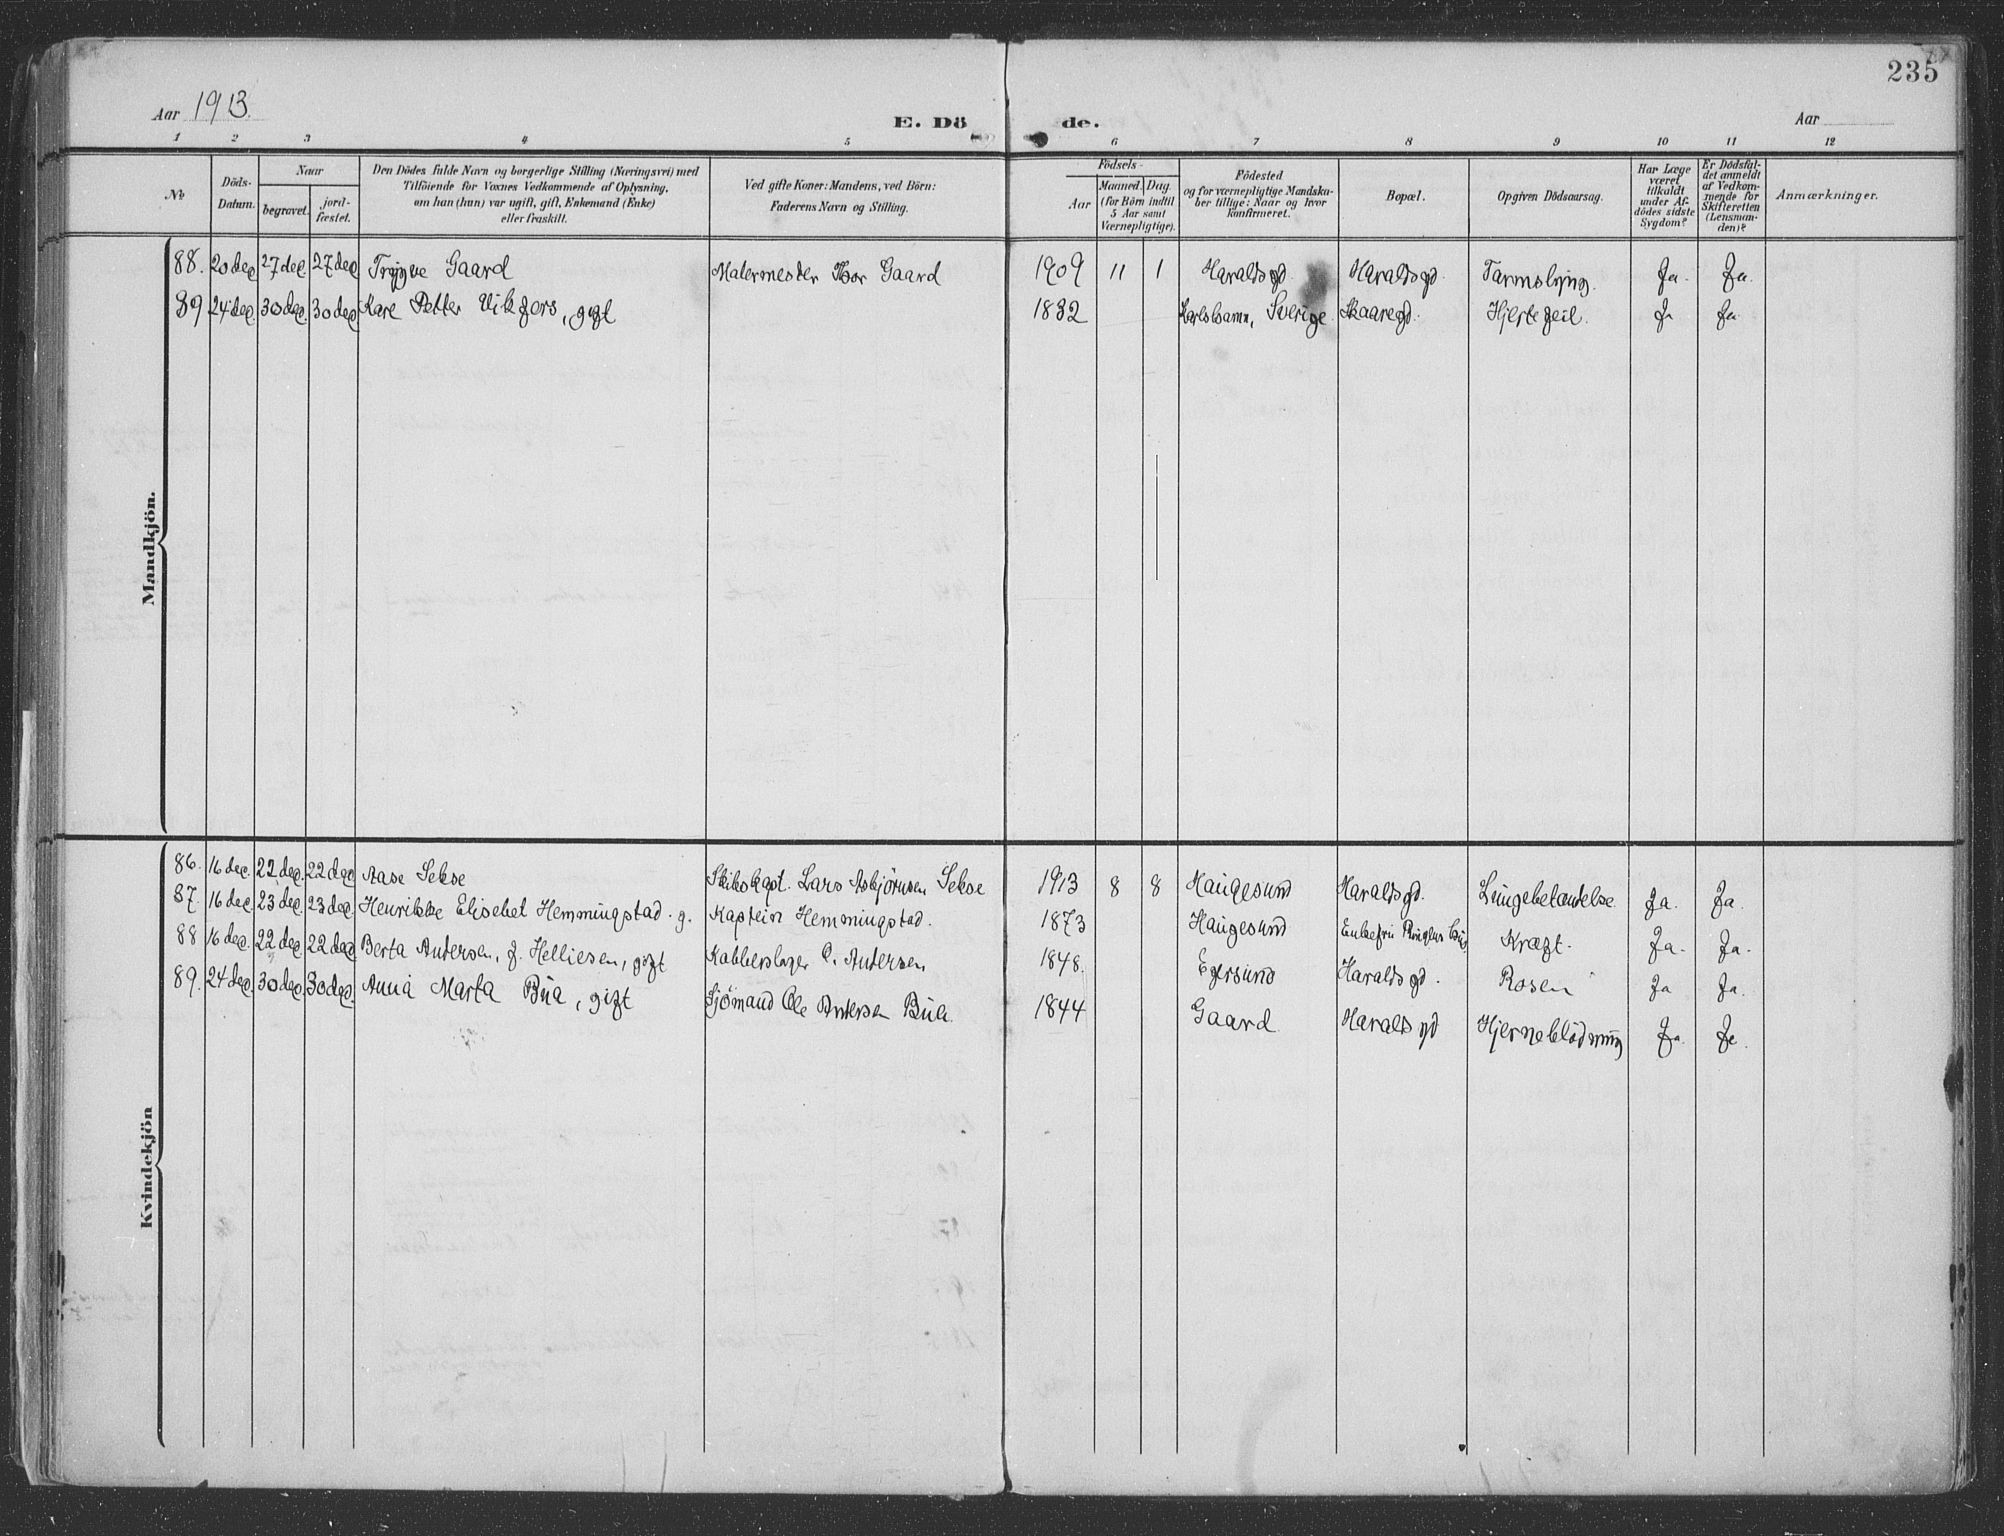 235
Aar 1913.
E. Döde.
Aar
1 2 3 4 5 6 7 8 9 10 11 12
No
Döds-Datum.
Naar
begravet.
jord-fæstet.
Den Dödes fulde Navn og borgerlige Stilling (Næringsvei) med
Tilföiende for Voxnes Vedkommende af Oplysning,
om han (hun) var ugift, gift, Enkemand (Enke)
eller fraskilt.
Ved gifte Koner: Mandens, ved Börn:
Faderens Navn og Stilling.
Födsels-
Aar
Maaned. Dag.
(for Börn indtil
5 Aar samt
Værnepligtige).
Födested
og for værnepligtige Mandska-
ber tillige: Naar og hvor
konfirmeret.
Bopæl.
Opgiven Dödsaarsag.
Har Læge
været
tilkaldt
under Af-
dödes sidste
Sygdom?
Er Dödsfal-
det anmeldt
af Vedkom-
mende for
Skifteretten
(Lensman-
den)?
Anmærkninger.
Mandkjön.
88. 20 dec 27 dec 27 dec Trygve Gaard Malermester Thor Gaard 1909 11 1 Haraldsgd. Haraldsgd. Tarmslyng. Ja. Ja.
89 24 dec. 30 dec. 30 dec. Kare Petter Vikfors, gift 1832 Karlshamn, Sverige. Skaaregd. Hjertefeil. Ja
Kvindekjön
86. 16 dec. 22 dec. 22 dec Aase Sekse Skibskapt. Lars Asbjørnsen Sekse 1913 8 8 Haugesund Haraldsgd. Lungebetændelse. Ja. Ja.
87. 16 dec. 23 dec. 23 dec. Henrikke Elisebet Hemmingstad. g. Kaptein Hemmingstad. 1873 Haugesund Kræft. Ja. Ja.
88 16 dec. 22 dec. 22 dec. Berta Andersen, f. Helliesen, gift Kobberslager Andersen 1848. Egersund Haraldsgd. Rosen Ja Ja.
89. 24 dec. 30 dec. 30 dec. Anna Marta Bua, gift Sjømand Ole Andersen Bua. 1844 Gaard Haraldsgd Hjerneblødning Ja. Ja.